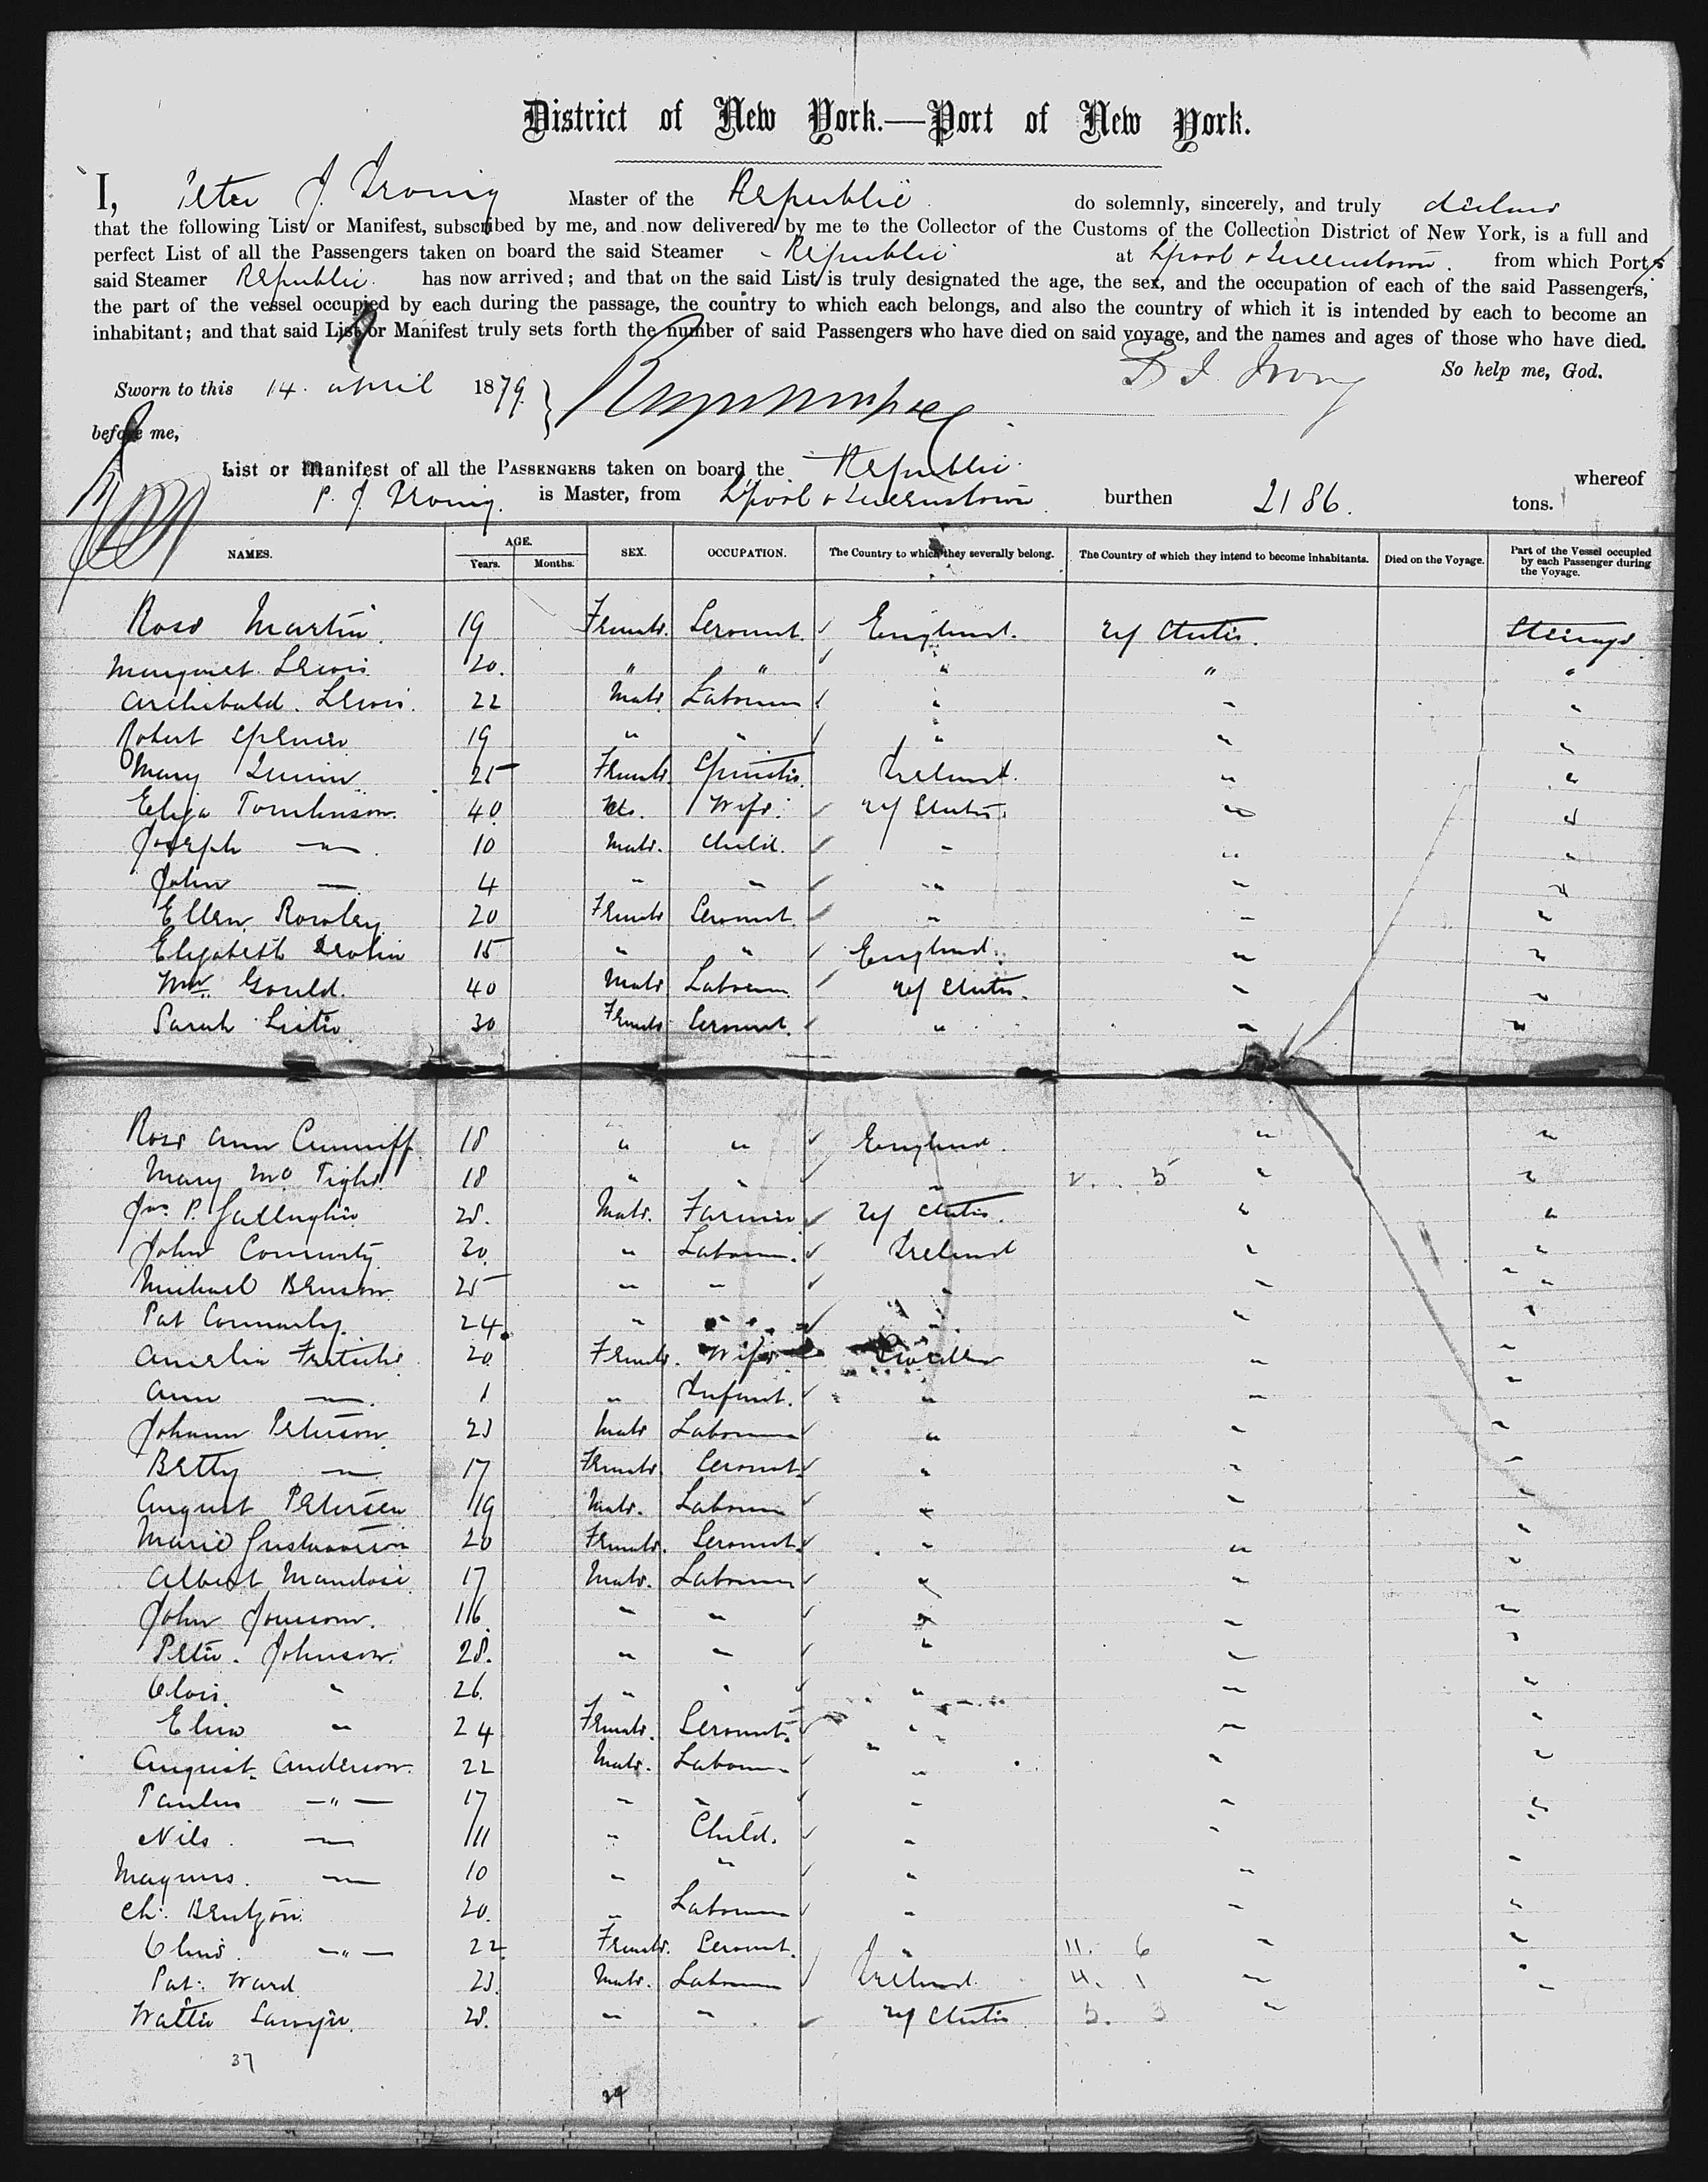 District of New York.—Port of New York.
I, Peter J. Irving Master of the Republic do solemnly, sincerely, and truly declare
that the following List or Manifest, subscribed by me, and now delivered by me to the Collector of the Customs of the Collection District of New York, is a full and
perfect List of all the Passengers taken on board the said Steamer Republic at Lpool & Queenstown. from which Ports
said Steamer Republic. has now arrived; and that on the said List is truly designated the age, the sex, and the occupation of each of the said Passengers,
the part of the vessel occupied by each during the passage, the country to which each belongs, and also the country of which it is intended by each to become an
inhabitant; and that said List or Manifest truly sets forth the number of said Passengers who have died on said voyage, and the names and ages of those who have died.
So help me, God.
P J Irving
Sworn to this 14. April 1879.
before me,
List or Manifest of all the Passengers taken on board the Republic. whereof
P. J. Irving. is Master, from Lpool & Queenstown. burthen 2186. tons.
NAMES. AGE. Years. Months. SEX. OCCUPATION. The Country to which they severally belong. The Country of which they intend to become inhabitants. Died on the Voyage. Part of the Vessel occupied by each Passenger during the Voyage.
Rose Martin. 19 Female. Servant. England. U States. Steerage
Margaret Lewis 20. " " " " "
Archibald. Lewis. 22 Male. Labourer " " "
Robert Spencer 19 " " " " "
Mary Quinn 25 Female. Spinster. Ireland. " "
Eliza Tomlinson. 40. do. Wife. U States. " "
Joseph — " — 10 Male. Child. " " "
John — 4 " " " " "
Ellen Rowley 20 Female Servant. " " "
Elizabeth 15 " " England. " "
Wm. Gould. 40 Male Labourer. U States. " "
Sarah Lister 30 Female Servant. " " "
Rose Ann Cunniff 18 " " England. " "
Mary Mc Tighe 18 " " " 2. 5 " "
Jas. P. Gallagher 28. Male. Farmer U States. " "
John 30. " Labourer. Ireland " "
Michael 25 " " " " "
Pat Connolly. 24. " " " " "
Amelia 20 Female. Wife Sweden " "
Ann — " — 1 " Infant. " " "
Johann Peterson 23 Male Labourer " " "
Betty — " — 17 Female. Servant. " " "
August Petersen 19 Male. Labourer " " "
Marie Gustavson 20 Female. Servant. " " "
Albert 17 Male. Labourer " " "
John Jonsson. 16 " " " " "
Peter. Johnson. 28. " " " " "
" 26. " " " " "
" 24 Female. Servant. " " "
August Anderson. 22 Male. Labourer " " "
— " — 17 " " " " "
Nils. — " — 11 " Child. " " "
Magnus. — " — 10 " " " " "
Ch. 20. " Labourer " " "
— " — 22. Female. Servant. " 11. 6 " "
Pat. Ward 23. Male. Labourer Ireland. 4. 1 " "
Walter Sawyer. 28. " " U States. 5. 3 "
37